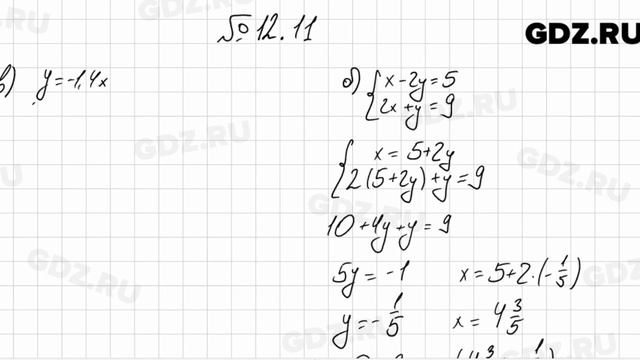 № 12.11
GDZ.RU
в) y = -1,4x
б) { x - 2y = 5
2x + y = 9
{ x = 5 + 2y
2(5 + 2y) + y = 9
10 + 4y + y = 9
5y = -1    x = 5 + 2·(-1/5)
y = -1/5    x = 4 3/5